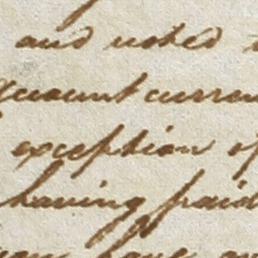 and noted
account curren
exception of
having paid
have